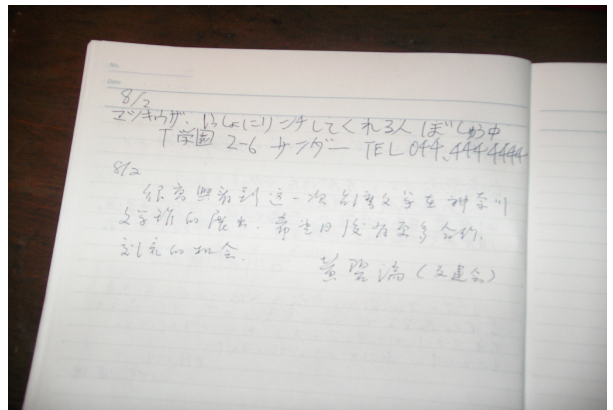 No.
Date
8/2
マツキウザ、いっしょにリンチしてくれる人 ぼしゅう中
T学園 2-6 サンダー TEL 044.444.4444
8/2
很高興看到這一次台灣文學在神奈川
文學館的展出，希望日後有更多合作、
交流的机会.
黃碧端(文建会)